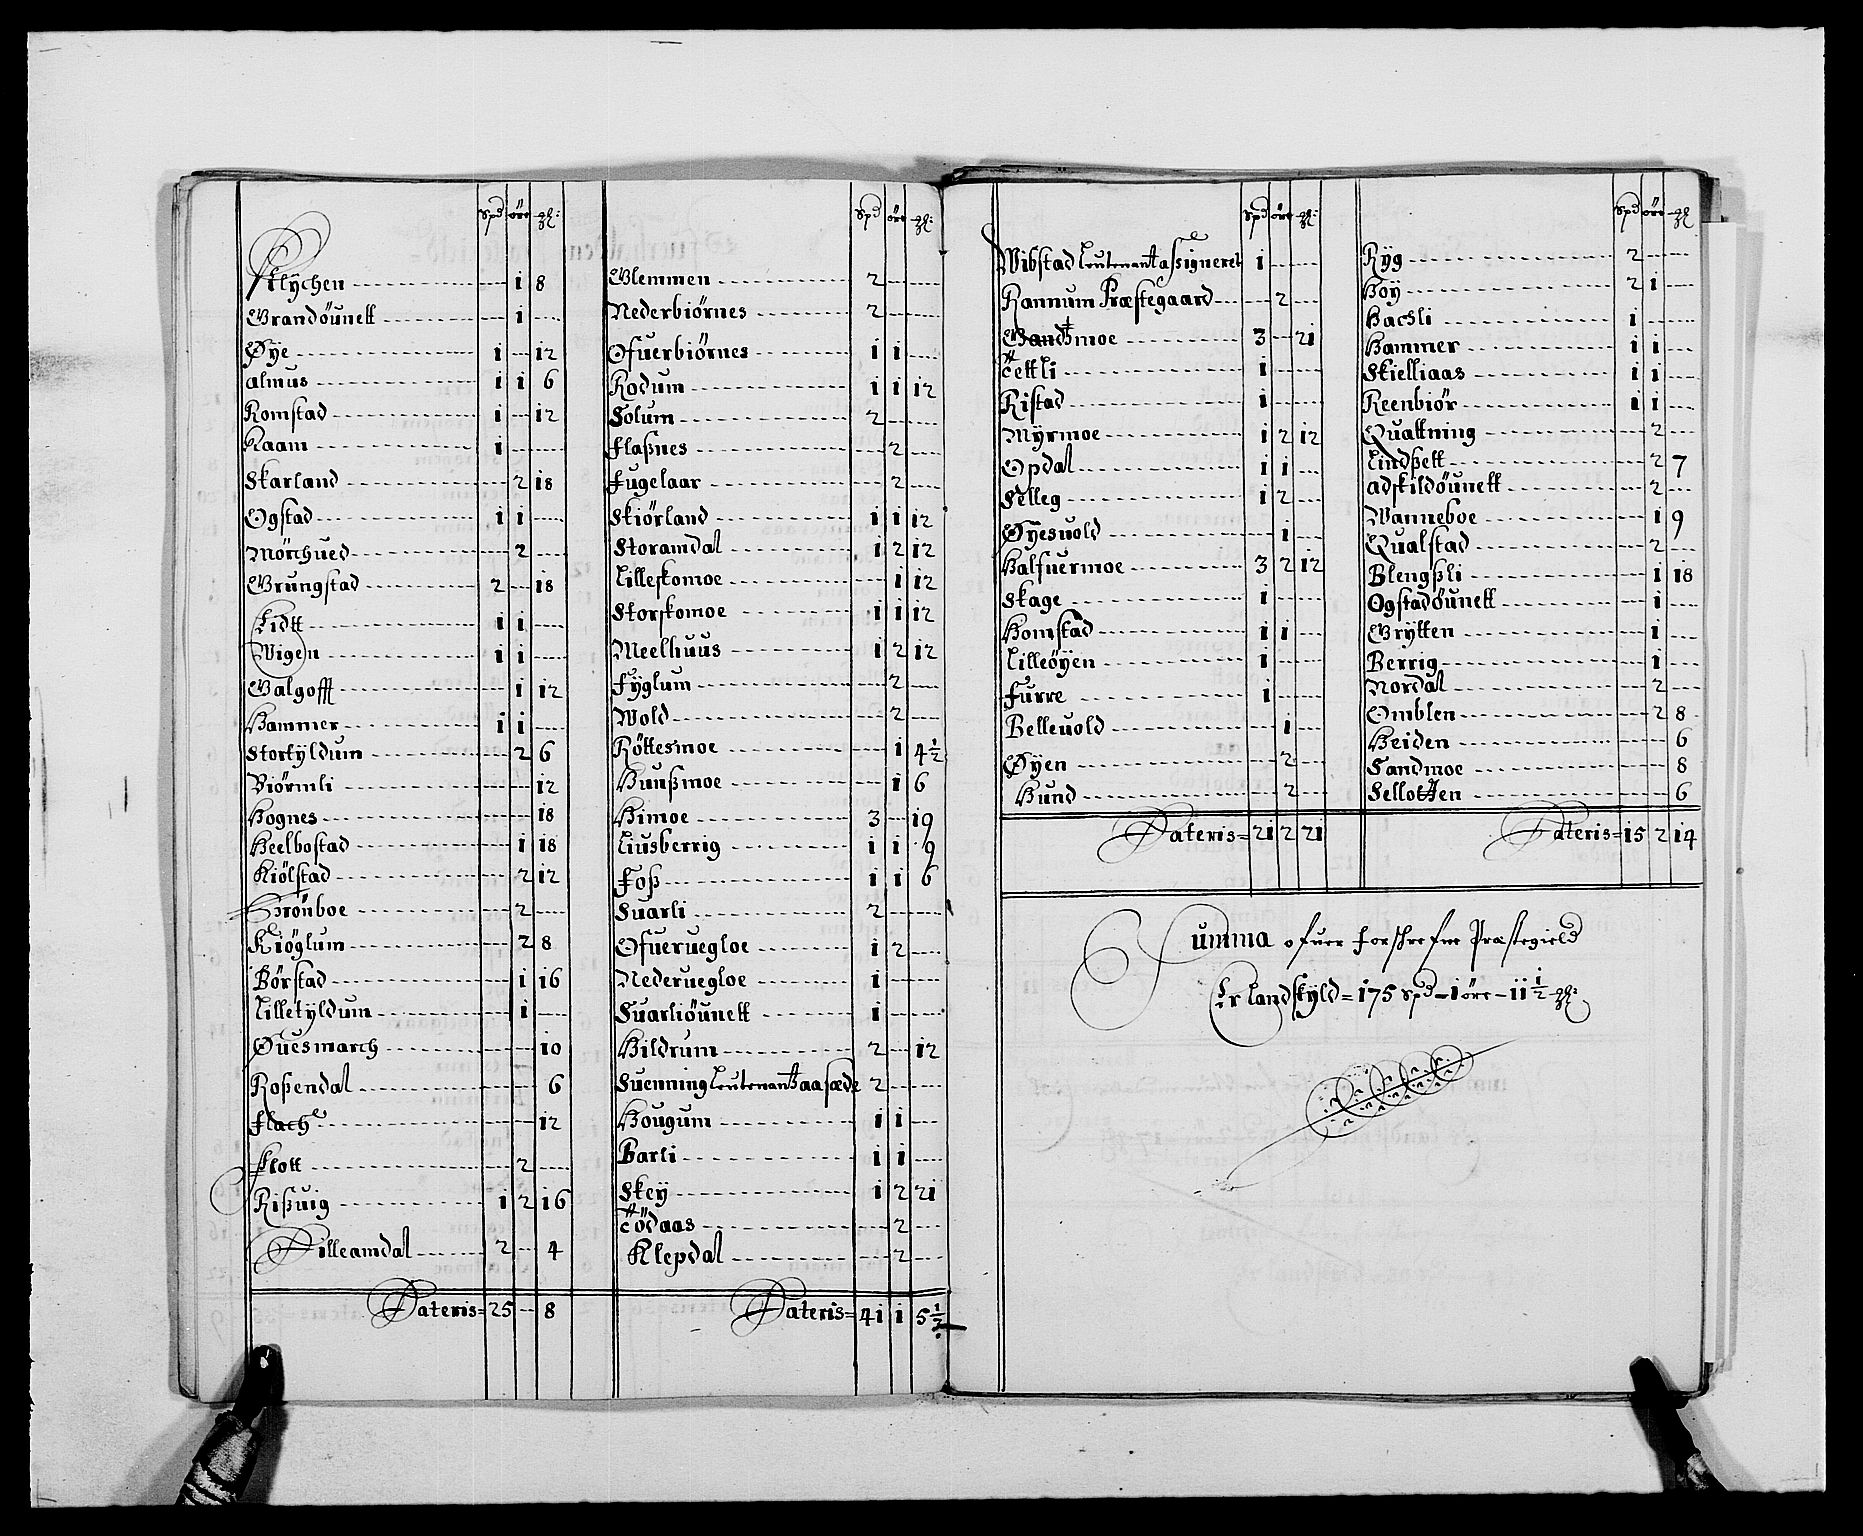 Spd öre gl:
Flÿchen 1 8
Grandöunett 1
Øÿe 1 12
almus 1 1 6
Romstad 1 12
Raam 1
Skarland 2 18
Ogstad 1 1
Mörchued 2
Grungstad 2 18
Lidtt 1 1
Wigen 1 1
Galgofft 1 12
Hammer 1 1
Stortÿldum 2 6
Biörmli 12
Hognes 18
Heelbostad 1 18
Kiölstad 2 12
Grönboe 2
Kiöglum 2 8
Börstad 1 16
Lilletÿldum 1
Øuesmarch 10
Roßendal 6
Flach 12
Flott 2
Rißuig 1 2 16
Lilleamdal 2 4
Lateris= 25 8
Spd öre gl:
Glemmen 2
Nederbiörnes 2
Ofuerbiörnes 1 1
Rodum 1 1 12
Solum 2
Flaßnes 2
Fugelaar 2
Skiörland 1 1 12
Storamdal 1 2 12
Lilleskomoe 1 12
Storskomoe 1 1 12
Meelhuus 1 2 12
Fÿglum 2
Wold 2
Röttesmoe 1 4 1/2
Huußmoe 1 6
Himoe 3 19
Liusberrig 1 1 9
Foß 1 1 6
Suarli 2
Ofueruegloe 1 2
Nederuegloe 1
Suarliöunett 1
Hildrum 2 12
Suenning Leutenant aasæde 2
Hougum 1 1
Barli 1 1
Skeÿ 1 2 21
Tödaas 2
Klepdal 2
Lateris= 41 1 5 1/2
Spd öre gl:
Wibstad Leutenant assigneret 1
Rannum Præstegaard 2
Gandtmoe 3 21
Tettli 1
Ristad 1
Mÿrmoe 1 2 12
Opdal 1 1
Selleg 1 2
Øÿesuold 1
Halfuermoe 3 2 12
Skage 1
Homstad 1 1
Lilleöÿen 1
Furre 1
Belleuold 1
Øÿen 2
Hund 2
Lateris= 21 2 21
Spd öre gl
Rÿg 2
Hoÿ 2 1
Hachli 1
Hammer 1 1
Skielliaas 1 1
Reenbiör 1 1
Quattning 2
Lindßett 2 7
adskildöunett 2
Wanneboe 1 9
Qualstad 2
Blengßli 1 18
Ogstadöunett 1
Grÿtten 1
Berrig 1
Nordal 2
Omblen 2 8
Heiden 6
Sandmoe 8
Sellotten 6
Lateris= 15 2 14
Summa ofuer forschrefne Præstegield
Er landskÿld= 175 Spd – 1 öre – 11 1/2 gl: